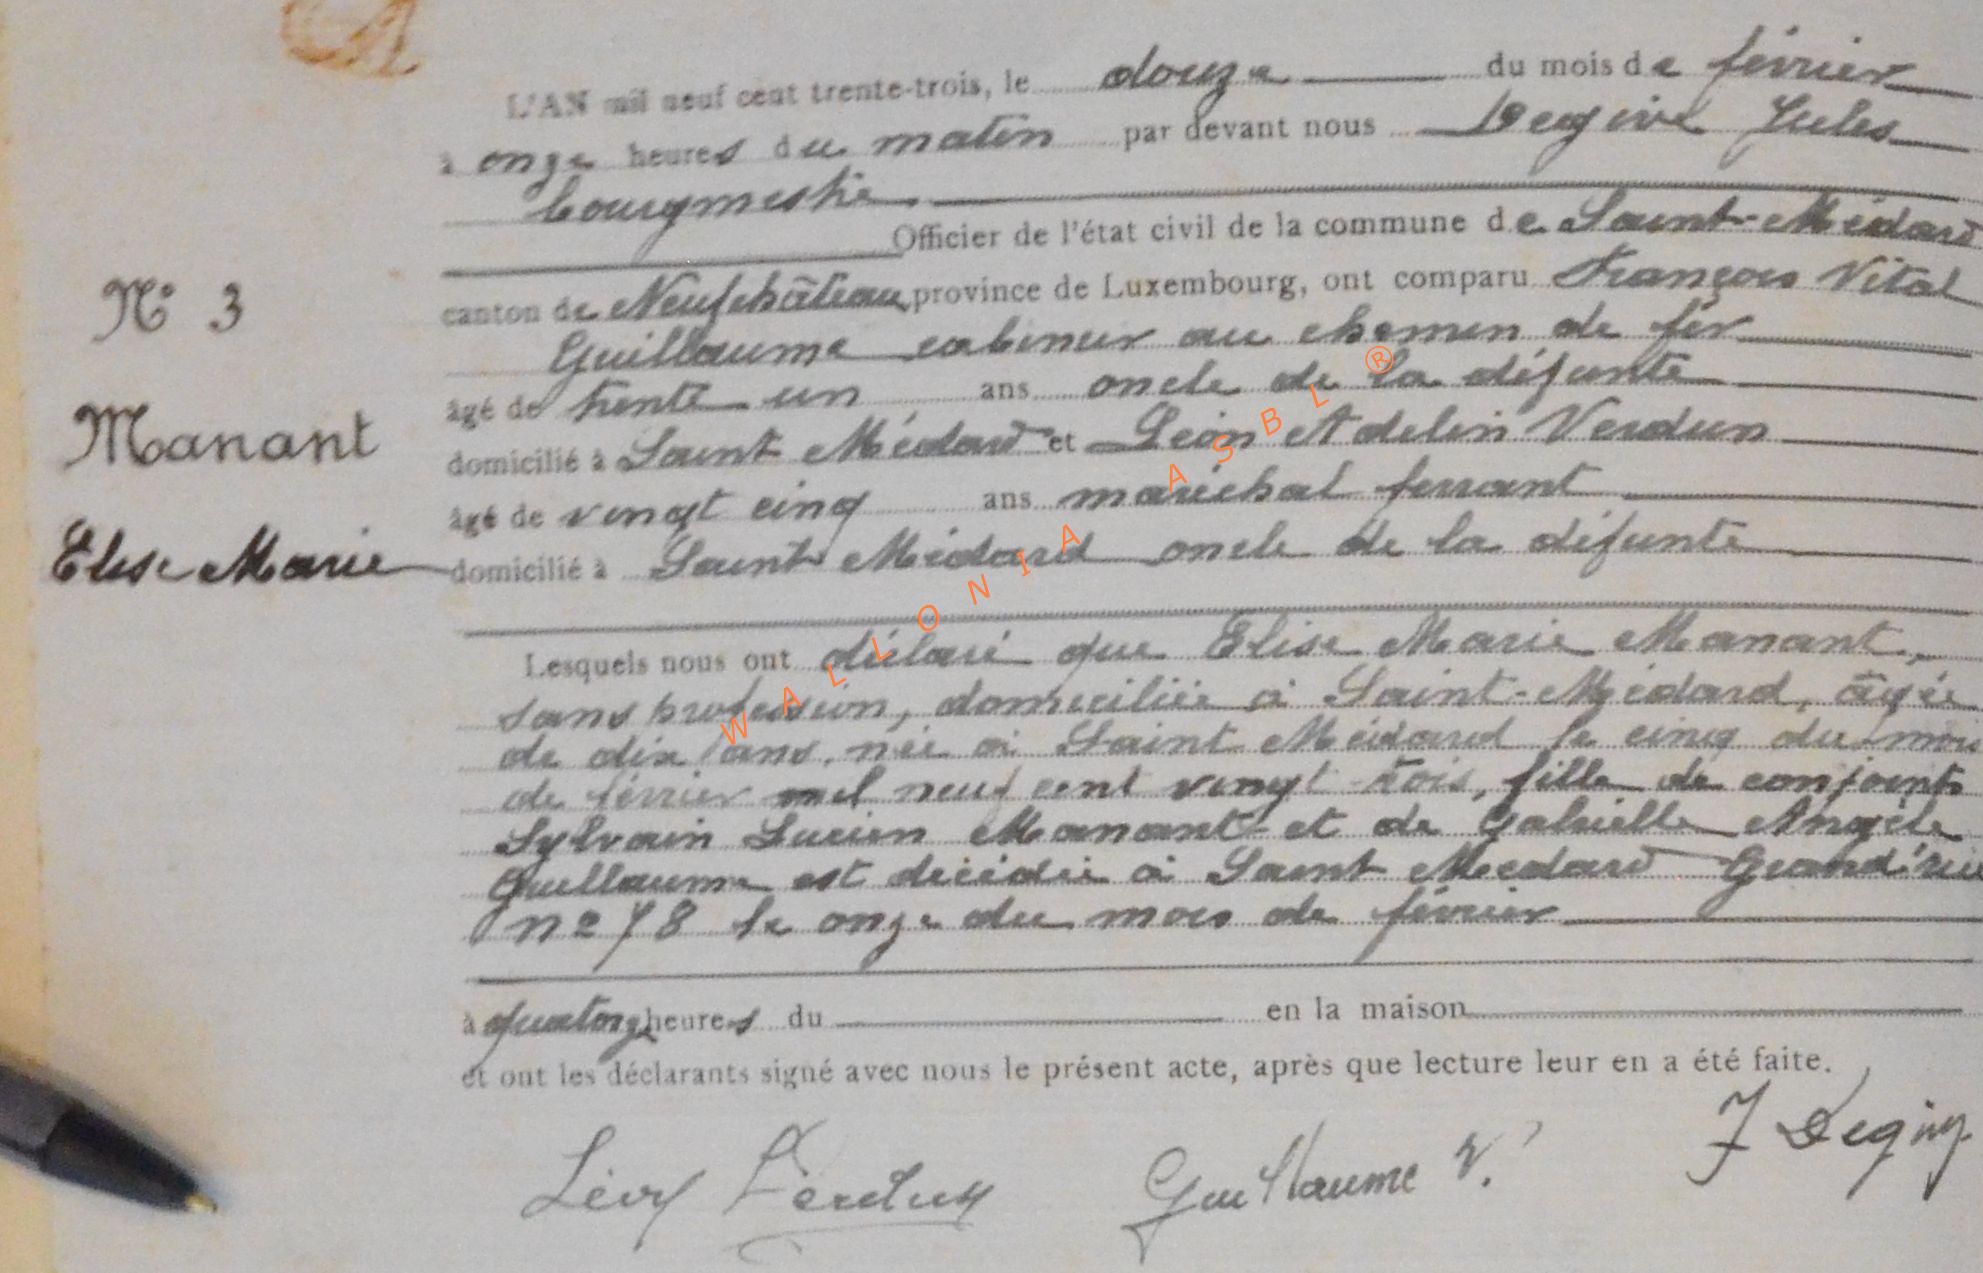 L'AN mil neuf cent trente-trois, le douze du mois de février
à onze heures du matin par devant nous Degive Jules
bourgmestre
Officier de l'état civil de la commune de Saint-Médard
N° 3
canton de Neufchâteau province de Luxembourg, ont comparu François Vital
Guillaume cabineur au chemin de fer
âgé de trente un ans oncle de la défunte
Manant
domicilié à Saint Médard et Léon Adelin Verdun
âgé de vingt cinq ans maréchal ferrant
Elise Marie
domicilié à Saint Médard oncle de la défunte
Lesquels nous ont déclaré que Elise Marie Manant,
sans profession, domiciliée à Saint-Médard, âgée
de dix ans, née à Saint Médard le cinq du mois
de février mil neuf cent vingt trois, fille de conjoints
Sylvain Lucien Manant et de Gabrielle Angèle
Guillaume est décédée à Saint Médard Grand'rue
n° 78 le onze du mois de février
à quatorze heures du en la maison
et ont les déclarants signé avec nous le présent acte, après que lecture leur en a été faite.
Léon Verdun Guillaume V. J Degive
WALLONIA ASBL ®